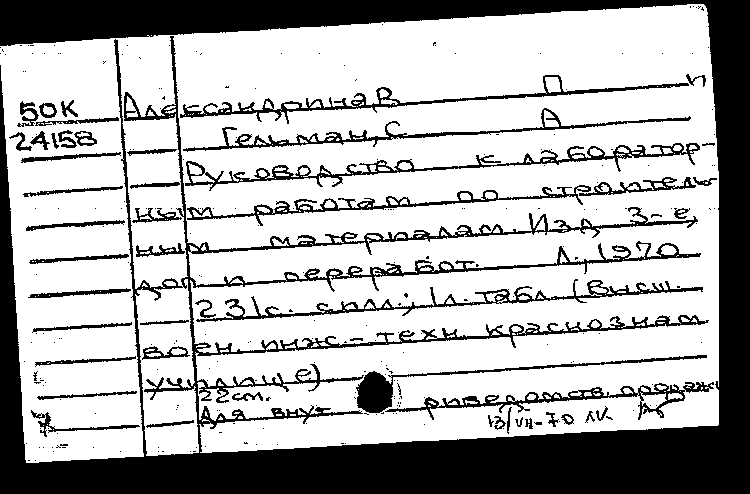 50К Александрина, В П и
24158 Гельман, С А
Руководство к лаборатор-
ным работам по строитель-
ным материалам. Изд 3-е,
доп и переработ. Л., 1970
231с. с илл.; 1л. табл. (Высш.
воен. инж.-техн. краснознам
училище)
22cm.
Для внут риведомств. продажи
13/VII-70 ЛК